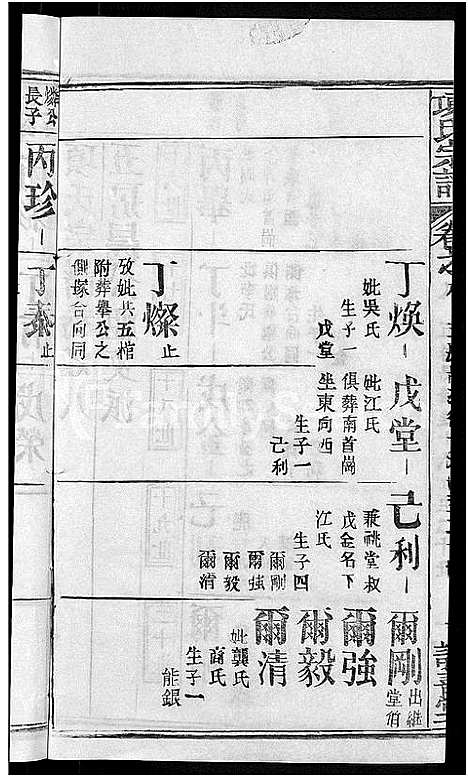 項氏宗譜
卷之
丁煥
妣吳氏
生子一
戊堂
戊堂
妣江氏
俱葬南首崗
坐東向西
生子一
己利
己利
兼祧堂叔
戊金名下
江氏
生子四
爾剛
爾強
爾毅
爾清
爾剛
出繼
堂伯
爾強
爾毅
爾清
妣龔氏
商氏
生子一
能銀
丁燦止
攷妣共五棺
附葬舉公之
側塚合向同
公
長子
丙珍
丁泰止